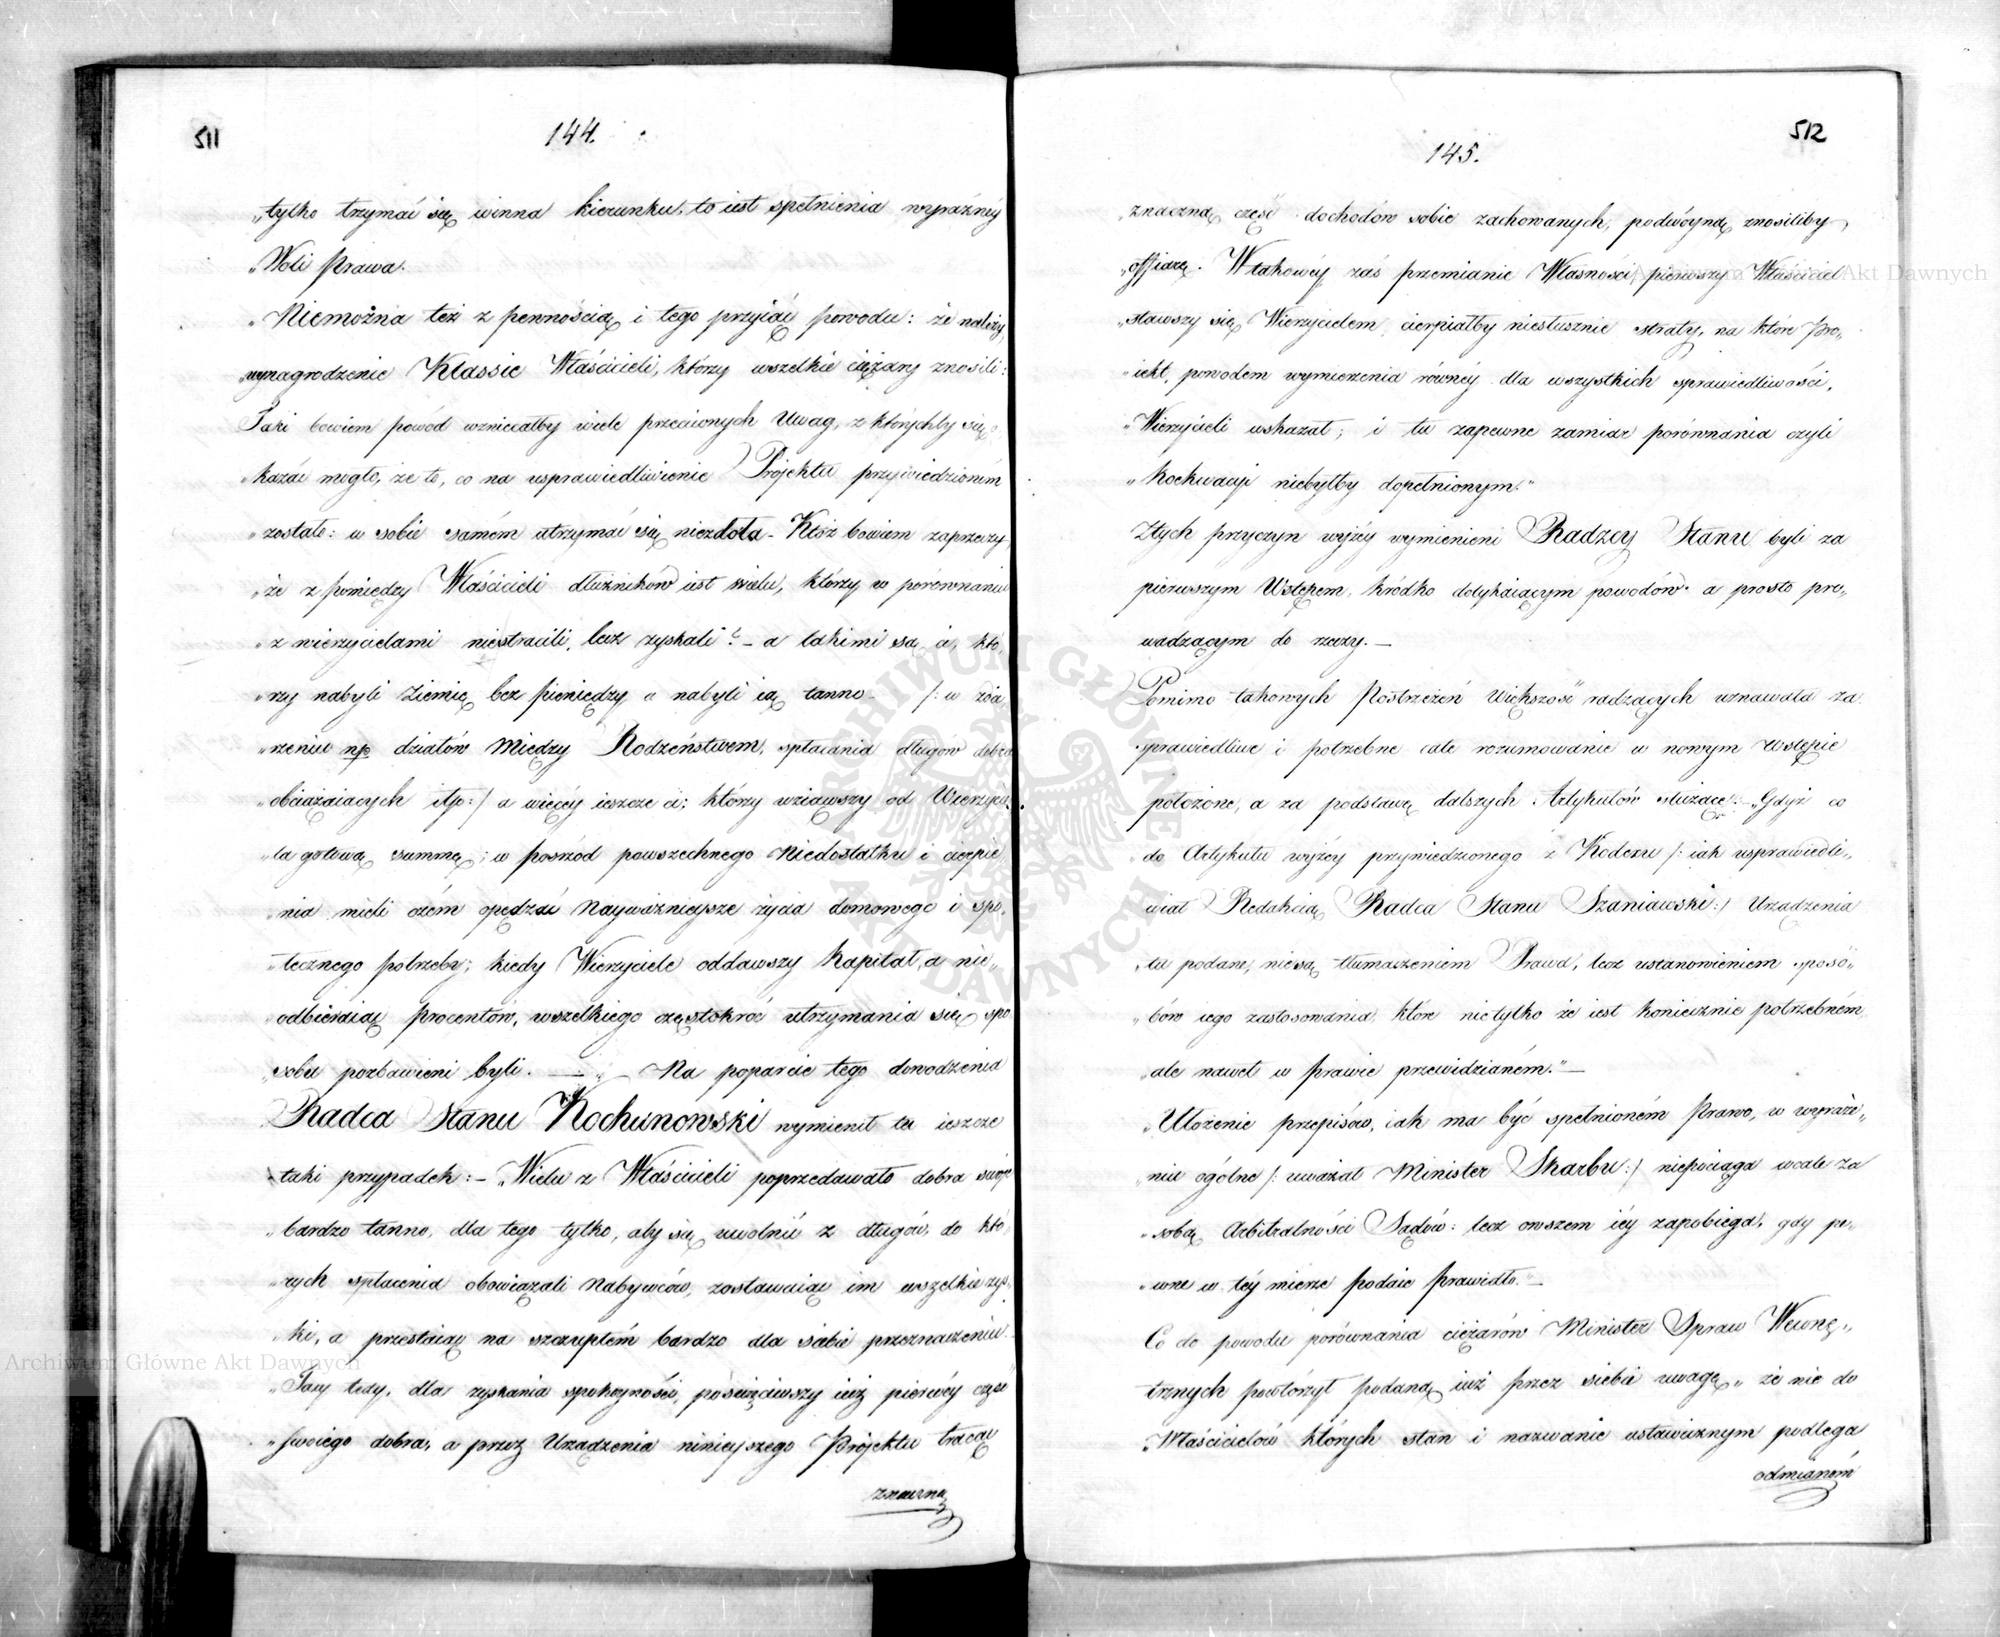 511
144.
„tylko trzymać się winna kierunku, to iest spełnienia wyraźnéy
„Woli Prawa.
„Niemożna też z pewnością i tego przyiąć powodu: że należy
„wynagrodzenie Klassie Właścicieli, którzy wszelkie ciężary znosili:
Taki bowiem powód wzniecałby wiele przeciwnych Uwag, z którychby się o
„kazać mogło, że to, co na usprawiedliwienie Projektu przywiedzioném
„zostało: w sobie samém utrzymać się niezdoła – Któż bowiem zaprzeczy,
„że z pomiędzy Właścicieli dłużników iest wielu, którzy w porównaniu
„z wierzycielami niestracili, lecz zyskali? – a takimi są ci, któ„
„rzy nabyli Ziemię bez pieniędzy a nabyli ią tanno – /: w zda„
„rzeniu np działów Między Rodzeństwem, spłacania długów dobra
„obciążaiących itp:/ a więcéy ieszcze ci; którzy wziąwszy od Wierzycie„
„la gotową summę; w pośród powszechnego Niedostatku i cierpie„
„nia mieli czém opędzać Nayważnieysze życia domowego i spo„
„łecznego potrzeby; kiedy Wierzyciele oddawszy Kapitał, a nie„
„odbieraiąc procentów, wszelkiego częstokroć utrzymania się spo
„sobu pozbawieni byli. — „ — Na poparcie tego dowodzenia
Radca Stanu Kochanowski wymienił tu ieszcze
taki przypadek: – „Wielu z Właścicieli poprzedawało dobra swoje
„bardzo tanno, dla tego tylko, aby się uwolnić z długów, do któ„
„rych spłacenia obowiązali Nabywców, zostawuiąc im wszelkie zys„
„ki, a przestaiąc na szczupłém bardzo dla siebie przeznaczeniu.
„Tacy tedy, dla zyskania spokoyności, poświęciwszy iuż pierwéy część
„swoiego dobra, a przez Urządzenia ninieyszego Projektu tracąc
znaczną
512
145.
„znaczną część dochodów sobie zachowanych, podwóyną znosiliby
„offiarę. W takowéy zaś przemianie Własności, pierwszy Właściciel
„stawszy się Wierzycielem, cierpiałby niesłusznie straty, na które Pro„
„iekt, powodem wymierzenia równéy dla wszystkich sprawiedliwości,
„Wierzycieli wskazał; i tu zapewne zamiar porównania czyli
„Koekwacyi niebyłby dopełnionym."
Z tych przyczyn wyżéy wymienieni Radzcy Stanu byli za
pierwszym Wstępem, krótko dotykaiącym powodów a prosto pro„
wadzącym do rzeczy. —
Pomimo takowych Postrzeżeń większość radzących uznawała za
sprawiedliwe i potrzebne całe rozumowanie w nowym Wstępie
położone, a za podstawę dalszych Artykułów służące: – „Gdyż co
„do Artykułu wyżéy przywiedzionego z Kodexu /: iak usprawiedli„
wiał Redakcią Radca Stanu Szaniawski :/ Urządzenia
„tu podane, niesą tłumaczeniem Prawa, lecz ustanowieniem sposo„
„bów iego zastosowania, które nietylko że iest koniecznie potrzebném
„ale nawet w prawie przewidzianém." —
„Ułożenie przepisów, iak ma być spełnioném Prawo, w wyraże„
„niu ogólne /: uważał Minister Skarbu :/ niepociąga wcale za
„sobą Arbitralności Sądów: lecz owszem iéy zapobiega, gdy pe„
„wne w téy mierze podaie prawidło." —
Co do powodu porównania ciężarów Minister Spraw Wewnę„
trznych powtórzył podaną iuż przez siebie uwagę „że nie do
„Właścicielów których stan i nazwanie ustawicznym podlega
odmianom
Archiwum Główne Akt Dawnych
Archiwum Główne Akt Dawnych
ARCHIWUM GŁÓWNE AKT DAWNYCH